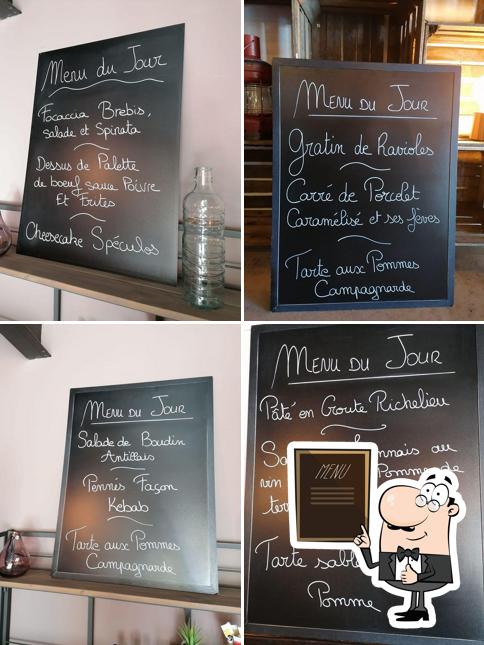 Menu du Jour
Focaccia Brebis,
salade et Spinata
Dessus de Palette
de boeuf sauce Poivre
Et Frites
Cheesecake Spéculos
MENU DU JOUR
Gratin de Ravioles
Carré de Porcelet
Caramélisé et ses fèves
Tarte aux Pommes
Campagnarde
MENU DU JOUR
Salade de Boudin
Antillais
Pennés Façon
Kebab
Tarte aux Pommes
Campagnarde
MENU DU JOUR
Pâté en Croute Richelieu
nnais au
vin Pomme de
terr
Tarte sabl
Pomme
MENU